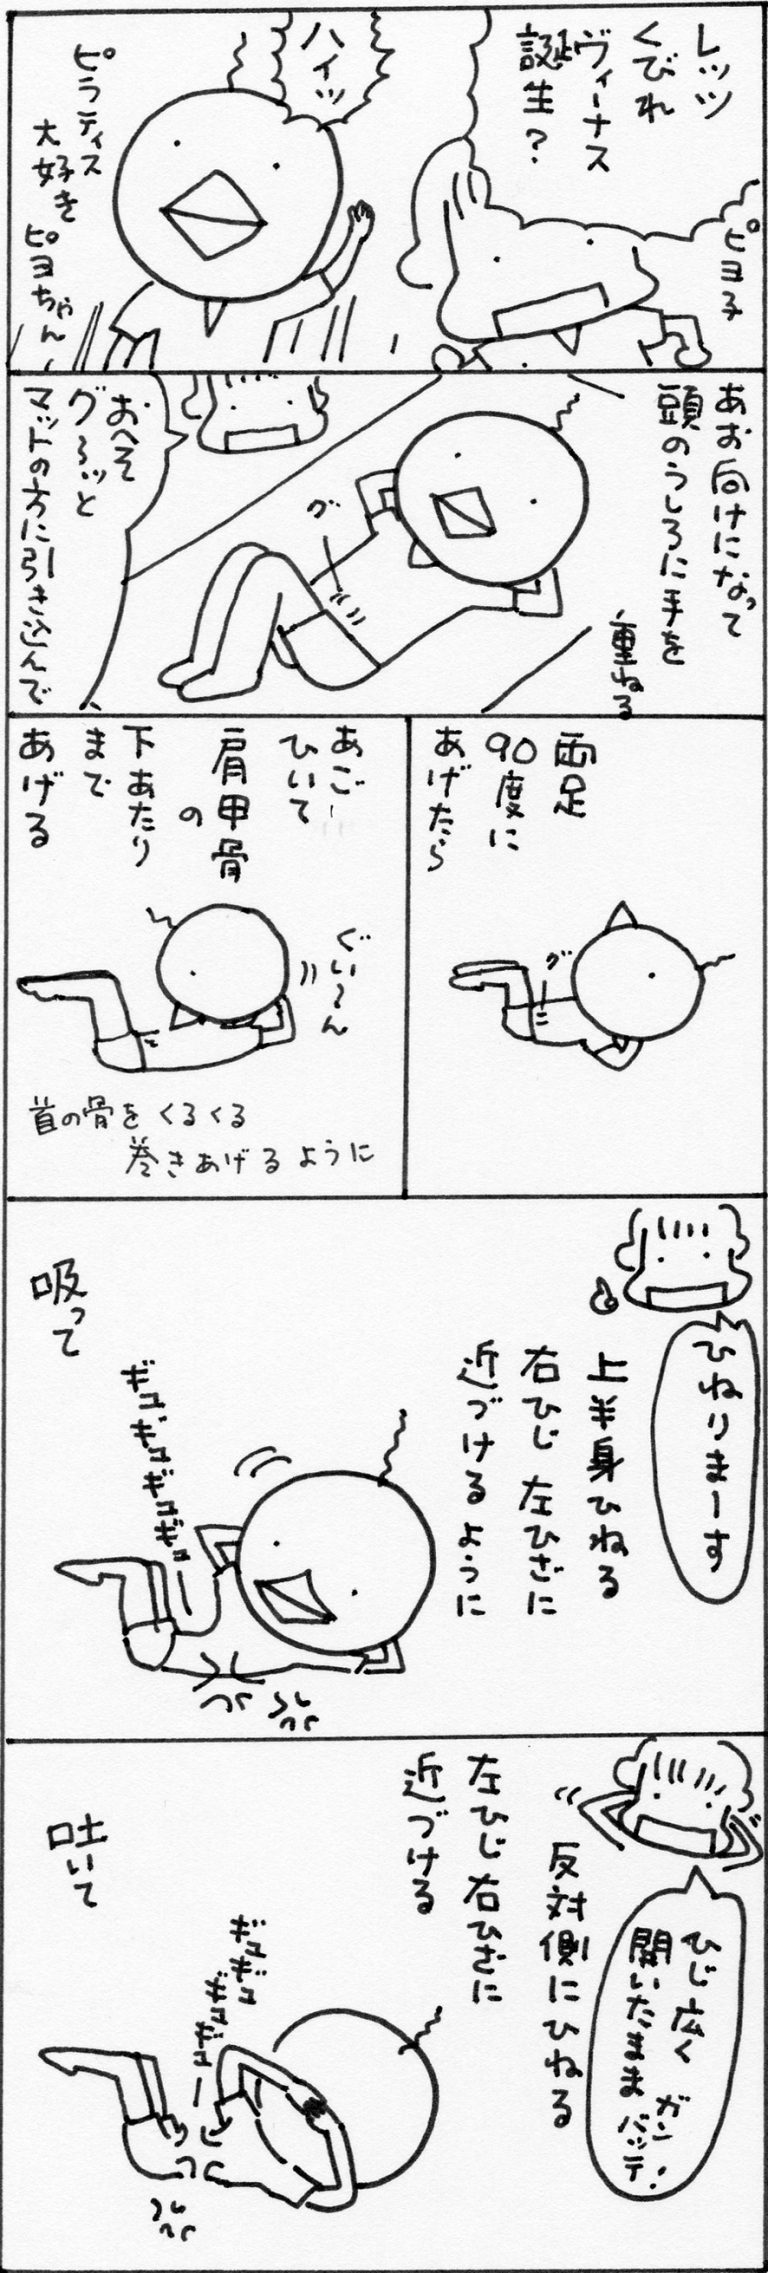 レッツ
くびれ
ヴィーナス
誕生？
ピヨ子
ハイッ
ピラティス
大好き
ピヨちゃん
あお向けになって
頭のうしろに手を
重ねる
グ
おへそ
グ〜ッと
マットの方に引き込んで
両足
90度に
あげたら
グ
あごー
ひいて
肩甲骨
の
下あたり
まで
あげる
ぐい〜ん
首の骨をくるくる
巻きあげるように
ひねりまーす
上半身ひねる
右ひじ 左ひざに
近づけるように
吸って
ギュギュギュギュー
ひじ広く
開いたまま
ガンバッテ！
反対側にひねる
左ひじ右ひざに
近づける
吐いて
ギュギュ
ギュギュー